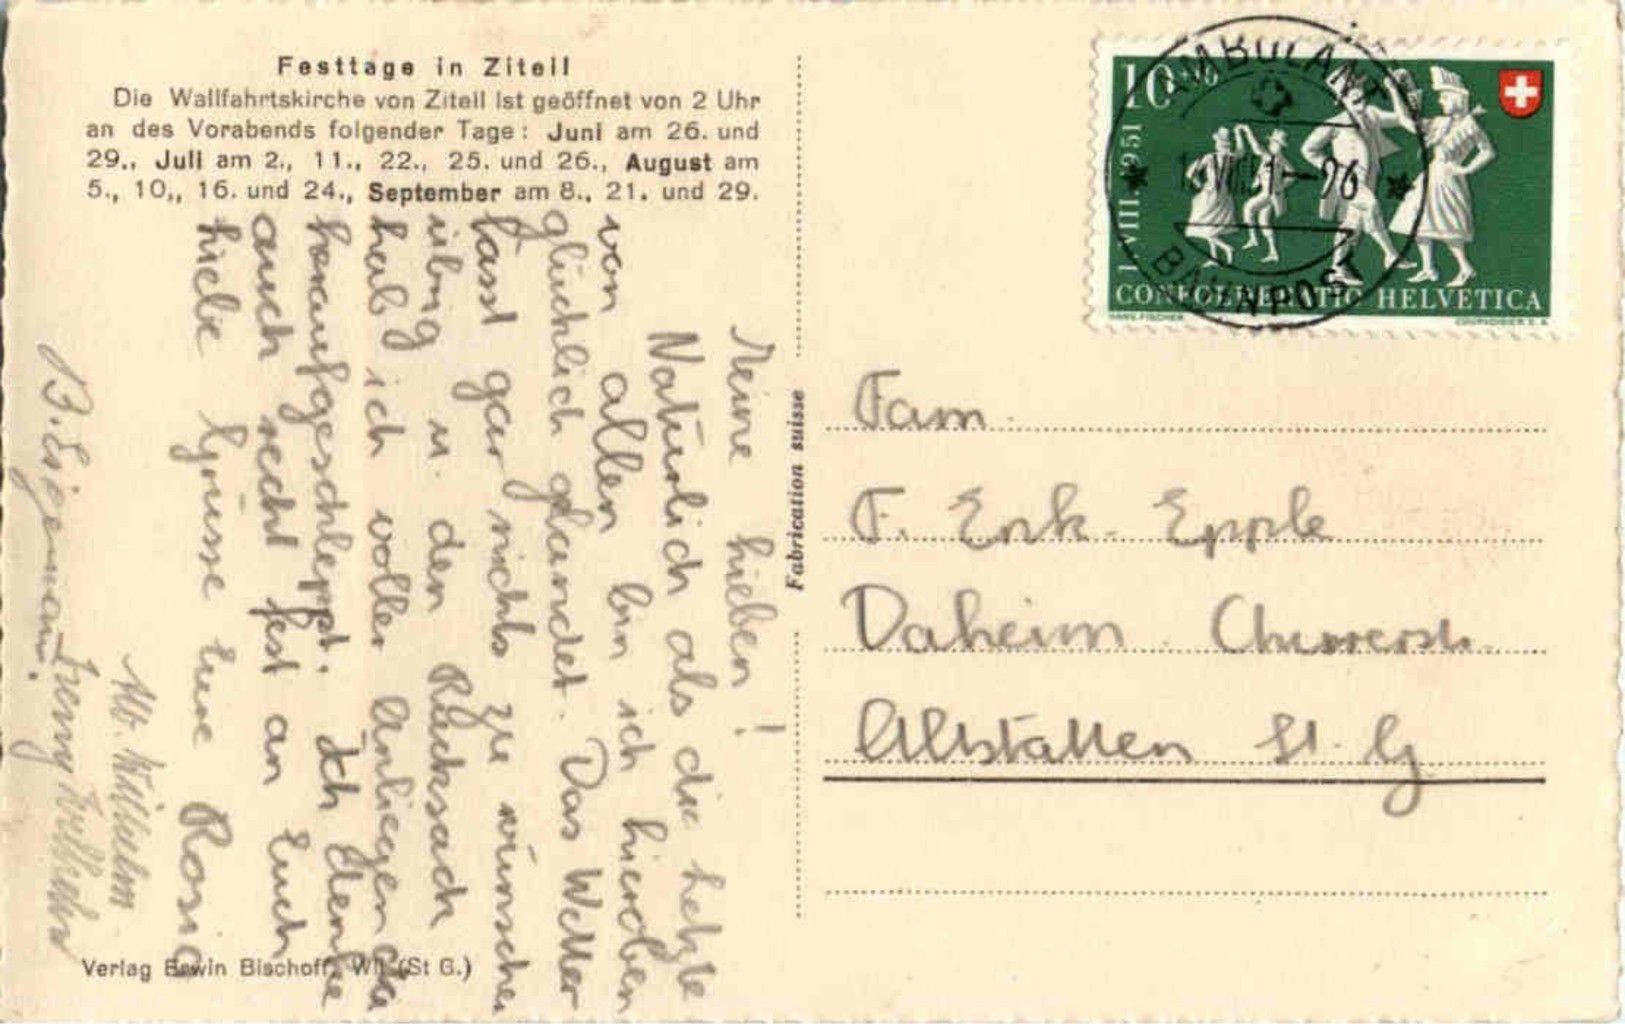 Festtage in Ziteil
Die Wallfahrtskirche von Ziteil ist geöffnet von 2 Uhr
an des Vorabends folgender Tage: Juni am 26. und
29., Juli am 2., 11., 22., 25. und 26., August am
5., 10., 16. und 24., September am 8., 21. und 29.
Meine Lieben!
Natürlich als die letzte
von allen bin ich hieroben
glücklich gelandet. Das Wetter
lässt gar nichts zu wünschen
übrig u. den Rucksack
hab ich voller Anliegen da
heraufgeschleppt. Ich denke
auch recht fest an Euch
Liebe Grüsse Eure Rosia
Alb. Wilhelm
Verlag Erwin Bischoff, Wil (St G.)
Fabrication suisse
10
1 VIII 1951
CONFOEDERATIO HELVETICA
HANS FISCHER
COURVOISIER S.A.
AMBULANT
BAHNPOST
Fam.
F. Enk-Epple
Daheim
Altstätten St. G